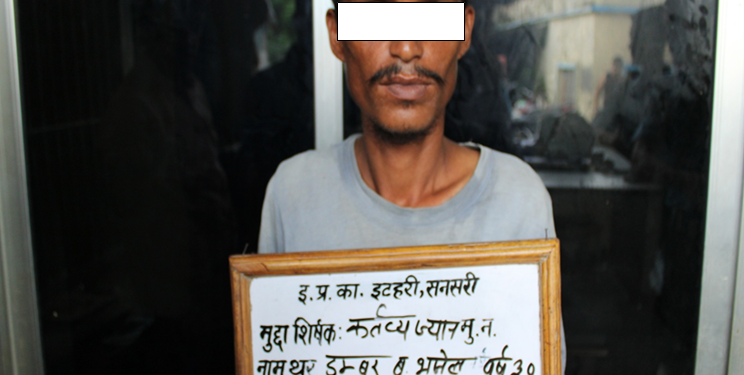 इ.प्र.का. इटहरी,सनसरी
मुद्दा शिर्षक: कर्तव्य ज्यान मु.न.
नाम थर डम्बर ब. भुमेल वर्ष ३०